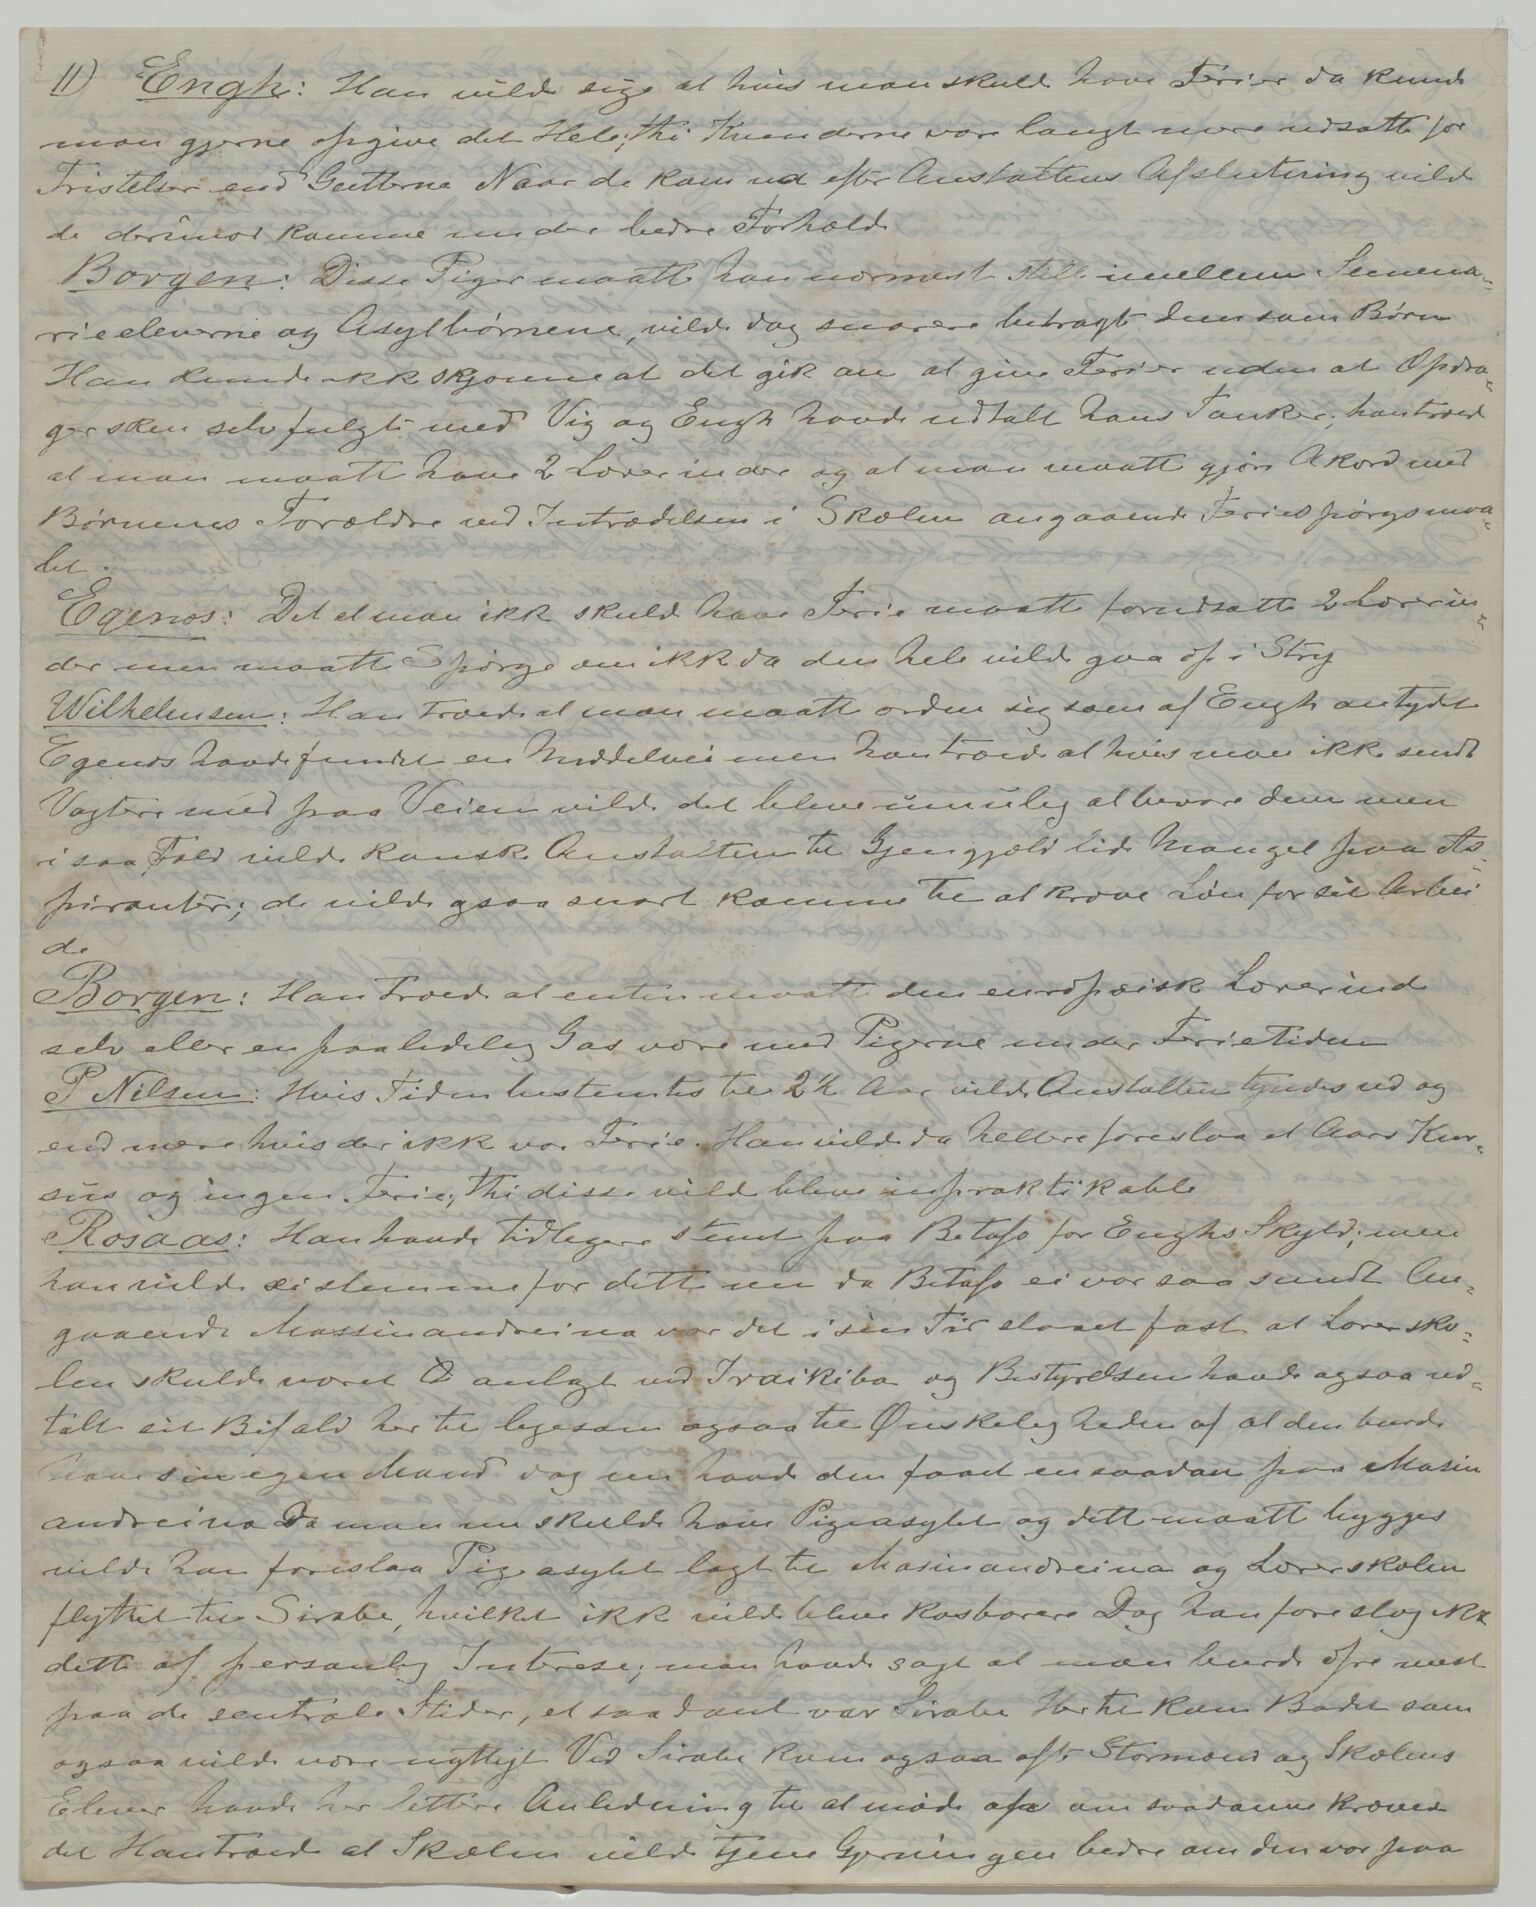 11) Engh: Han vilde sige at hvis man skulde have Ferier da kunde
man gjerne opgive det Hele; thi Kvinderne vare langt mere udsatte for
Fristelser end Gutterne Naar de kom ud efter Anstaltens Afslutning vilde
de derimod komme under bedre Forholde
Borgen: Disse Piger maatte han nærmest stille imellem Semena-
rieeleverne og Asylbørnene, vilde dog snarere betragte dem som Børn
Han kunde ikke skjønne at det gik an at give Ferier uden at Opdra-
gersken selv fulgte med Vig og Engh havde udtalt hans Tanker; han troede
at man maatte have 2 Lærerinder og at man maatte gjøre Akord med
Børnenes Forældre ved Indtrædelsen i Skolen angaaende Feriespørgsmaa-
let.
Egenæs: Det at man ikke skulde have Ferie maatte forudsætte 2 Lærerin-
der men maatte Spørge om ikke da den hele vilde gaa op i Stry
Wilhelmsen: Han troede at man maatte ordne sig som af Engh antydet
Egenæs havde fundet en Middelvei men han troede at hvis man ikke sendte
Vogtere med paa Veien vilde det blive umulig at bevare dem men
i saa Fald vilde kanske Anstalten til Gjengjæld lide Mangel paa As-
piranter; de vilde ogsaa snart komme til at kræve Løn for sit Arbei
de
Borgen: Han troede at enten maatte den europæiske Lærerinde
selv eller en paalidelig Gas være med Pigerne under Ferietiden
P Nilsen: Hvis Tiden bestemtes til 2½ Aar vilde Anstalten tyndes ud og
end mere hvis der ikke var Ferie. Han vilde da hellere foreslaa et Aars Kur-
sus og ingen Ferie; thi disse vilde blive inpraktikable
Rosaas: Han havde tidligere stemt paa Betafo for Enghs Skyld; men
han vilde ei stemme for dette nu da Betafo ei var saa sundt An-
gaaende Massinandreina var det i sin Tid slaaet fast at Lærersko-
len skulde været anlagt ved Ivaikiba og Bestyrelsen havde ogsaa ud-
talt sit Bifald her til ligesom ogsaa til Ønskeligheden af at den burde
have sin egen Mand dog nu havde den faaet en saadan paa Masin
andreina Da man nu skulde have Pigeasylet og dette maatte bygges
vilde han foreslaa Pigeasylet lagt til Masinandreina og Lærerskolen
flyttet til Sirabe, hvilket ikke vilde blive kosbarere Dog han foreslog ikke
dette af personlig Interese; man havde sagt at man burde ofre mest
paa de sentrale Stider, et saadant var Sirabe Hertil kom Badet som
ogsaa vilde være nyttigt Ved Sirabe kom ogsaa ofte Stormænd og Skolens
Elever havde her lettere Anledning til at møde op om saadanne krævede
det Han troede at Skolen vilde tjene Gjerningen bedre om den var paa